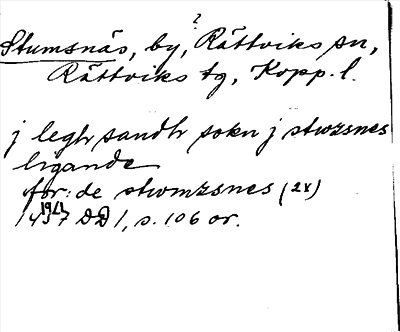 ?
Stumsnäs, by, Rättviks sn,
Rättviks tg, Kopp. l.
j leghr sandhr sokn j stwzsnes
ligande
for: de stwmzsnes (2x)
19/1
1457 DD 1, s. 106 or.